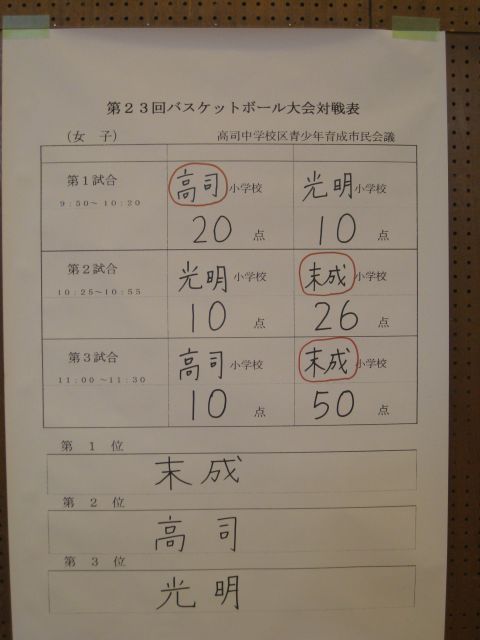 第２３回バスケットボール大会対戦表
（女　子）　高司中学校区青少年育成市民会議
第１試合　高司小学校　光明小学校
９：５０～１０：２０　20点　10点
第２試合　光明小学校　末成小学校
１０：２５～１０：５５　10点　26点
第３試合　高司小学校　末成小学校
１１：００～１１：３０　10点　50点
第　１　位
末成
第　２　位
高司
第　３　位
光明